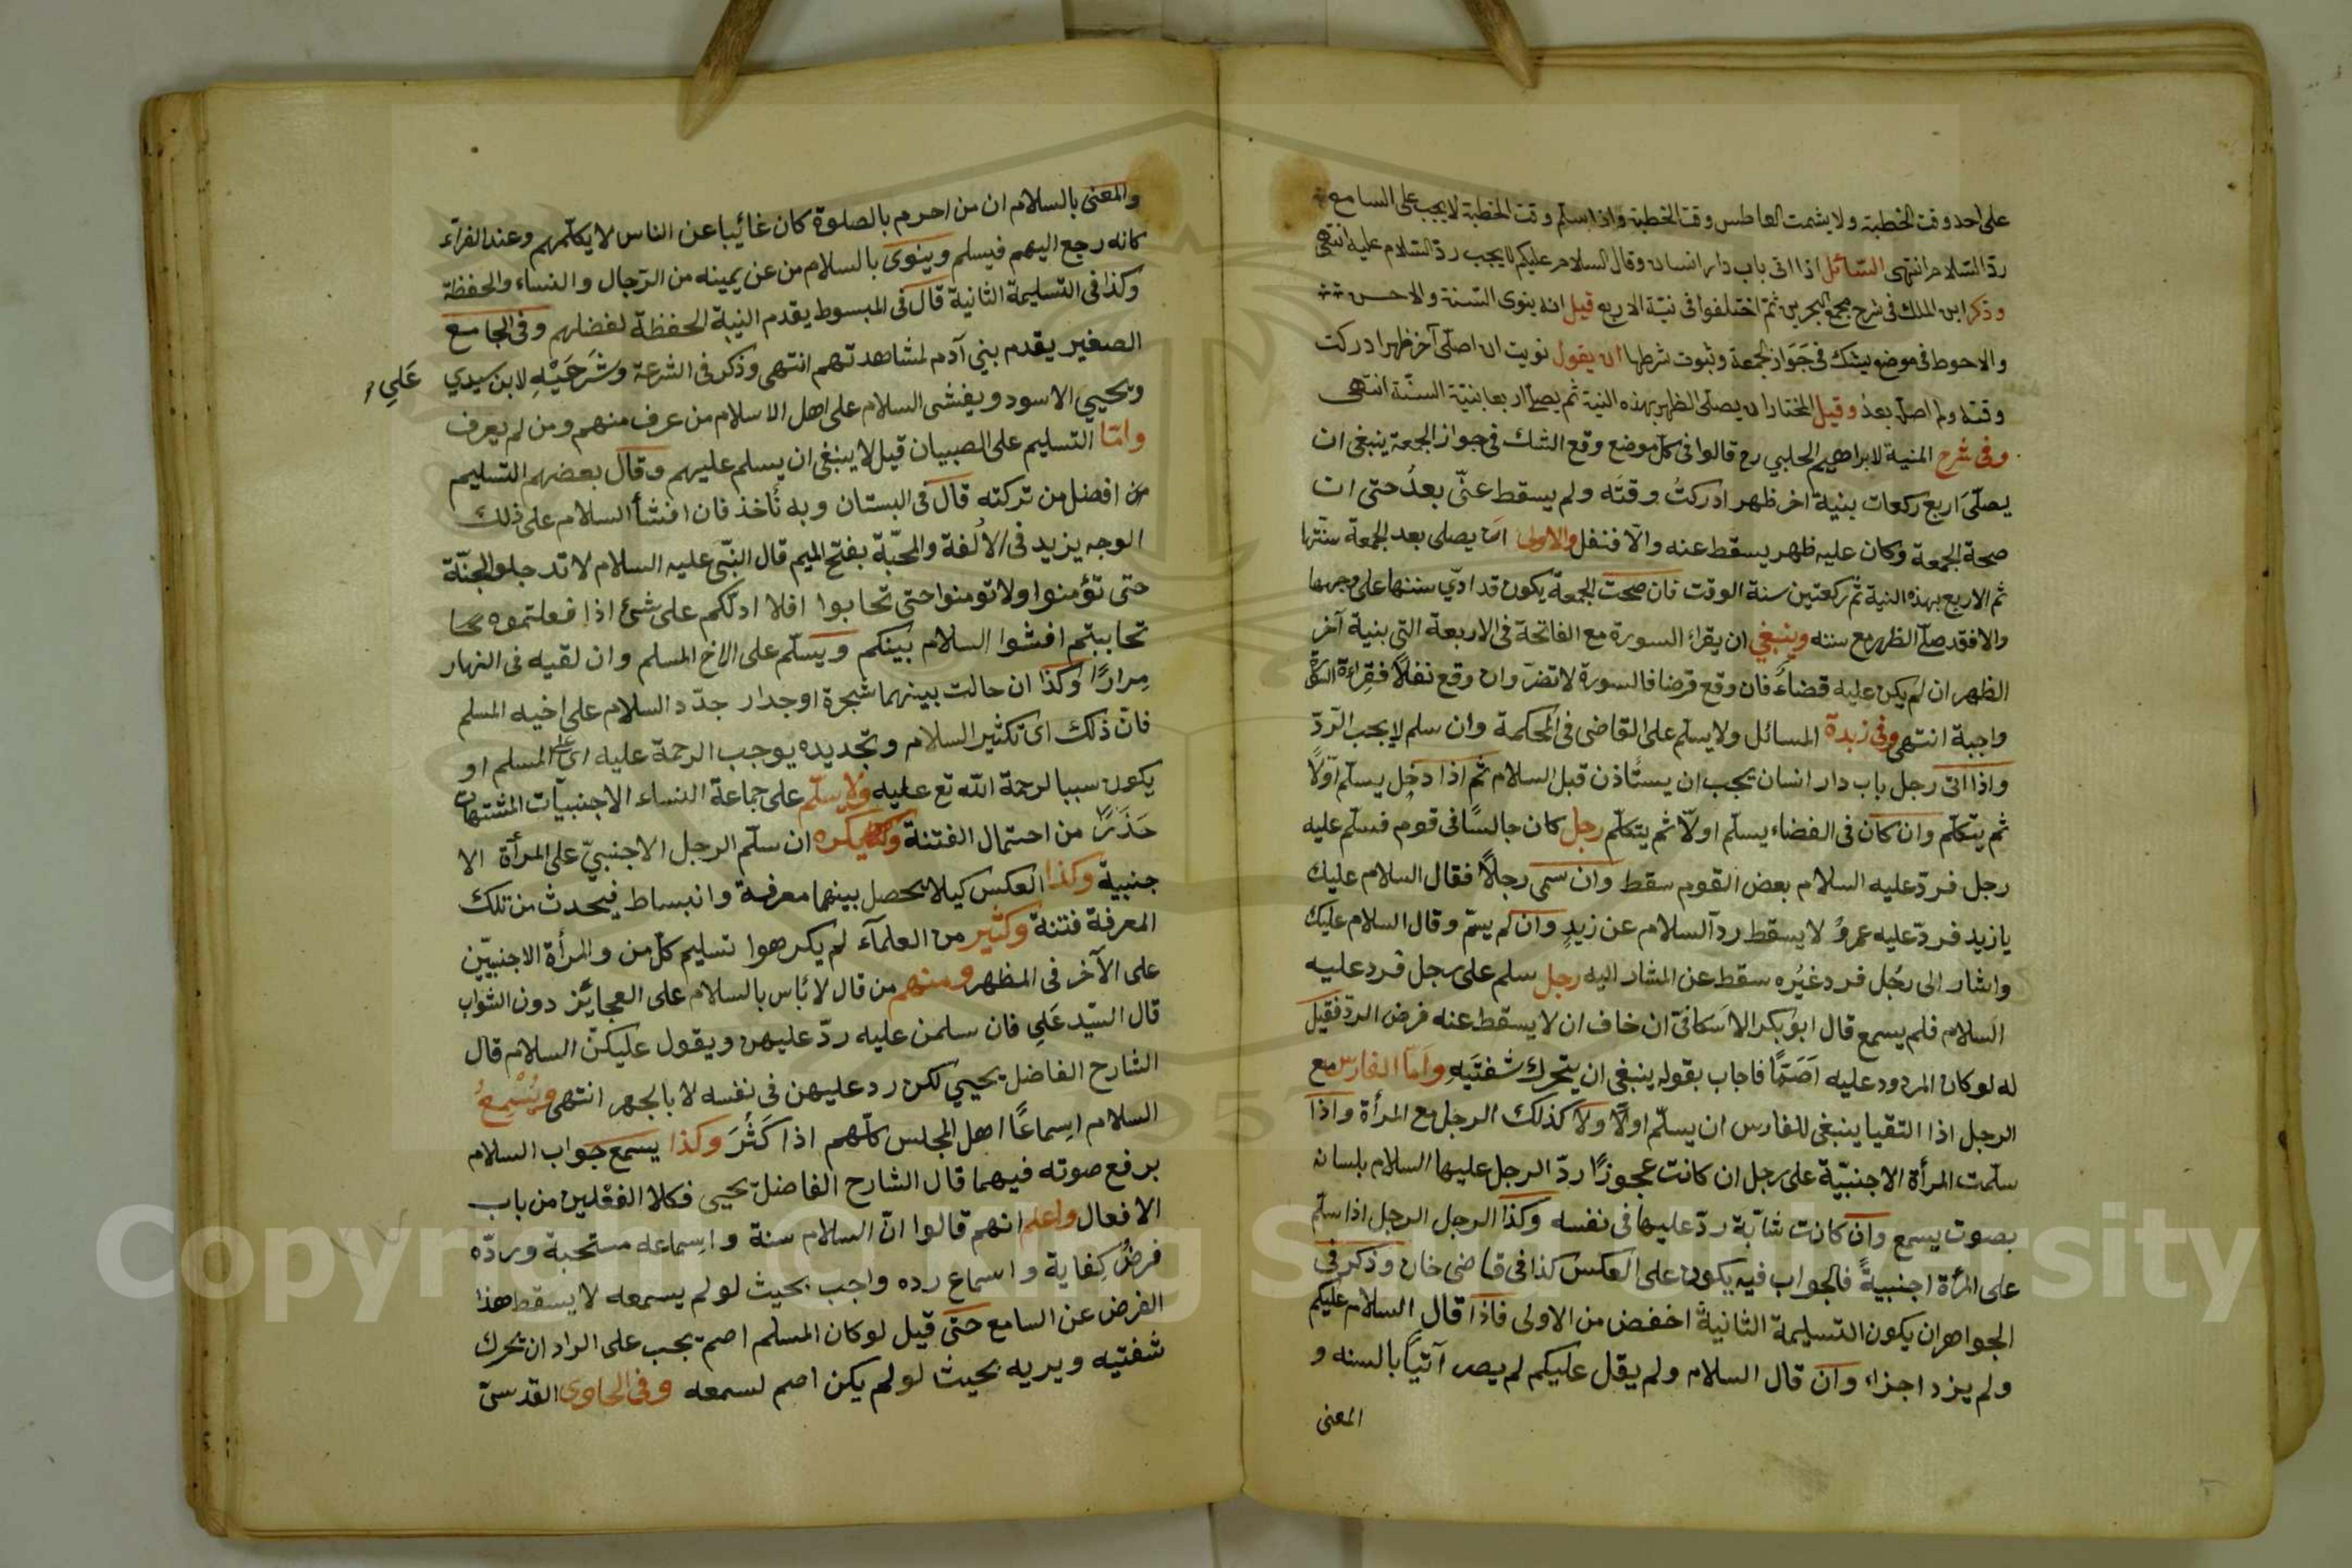 على احد وقت الخطبة ولا يشمت العاطس وقت الخطبة واذا سلم وقت الخطبة لا يجب على السامع
ردّ السّلام انتهى السّائل اذا اتى باب دار انسان وقال السلام عليكم لا يجب ردّ السّلام عليه انتهى
وذكر ابن الملك فى شرح مجمع البحرين ثم اختلفوا فى نيّة الاربع قيل انه ينوى السّنة والاحسن
والاحوط فى موضع يشك فى جَوَاز الجمعة وثبوت شرطها ان يقول نويت ان اصلّى آخر ظهر ادركت
وقته ولم اصلّه بعدُ وقيل المختار ان يصلّى الظهر بهذه النية ثم يصلّى اربعا بنيّة السنّة انتهى
وفى شرح المنية لابراهيم الحلبي رح قالوا فى كلّ موضع وقع الشك فى جواز الجمعة ينبغى ان
يصلّىَ اربع ركعات بنية اخر ظهر ادركتُ وقتَه ولم يسقط عنّى بعدُ حتى ان
صحة الجمعة وكان عليه ظهر يسقط عنه والّا فنفل والاولى ان يصلى بعد الجمعة سنّتها
ثم الاربع بهذه النية ثم ركعتين سنة الوقت فان صحت الجمعة يكون قد ادّي سننها على وجهها
والا فقد صلّى الظهر مع سننه وينبغي ان يقراء السورة مع الفاتحة فى الاربعة التى بنية آخر
الظهر ان لم يكن عليه قضاءً فان وقع فرضا فالسورة لا تضرّ وان وقع نفلًا فقراءة السورة
واجبة انتهى وفى زبدة المسائل ولا يسلّم على القاضى فى المحكمة وان سلم لا يجب الرّدّ
واذا اتى رجل باب دار انسان يجب ان يستًاذن قبل السلام ثم اذا دخل يسلّم اوّلًا
ثم يتكلّم وان كان فى الفضاء يسلّم اولّا ثم يتكلّم رجل كان جالسًا فى قوم فسلّم عليه
رجل فردّ عليه السلام بعض القوم سقط وان سمى رجلًا فقال السلام عليك
يا زيد فردّ عليه عمروٌ لا يسقط ردّ السلام عن زيدٍ وان لم يسمّ وقال السلام عليك
واشار الى رجُل فرد غيُره سقط عن المشار اليه رجل سلم على رجل فرد عليه
السلام فلم يسمع قال ابو بكر الاسكافى ان خاف ان لا يسقط عنه فرض الردّ فقيل
له لو كان المردود عليه اَصَمًّا فاجاب بقوله ينبغى ان يتحرك شفتَيه وامّا الفارس مع
الرجل اذا التقيا ينبغى للفارس ان يسلّم اولًا ولَا كذلك الرجل مع المرأة واذا
سلّمت المرأة الاجنبيّة على رجل ان كانت عجوزًا ردّ الرجل عليها السلام بلسانه
بصوت يسمع وان كانت شابّة ردّ عليها فى نفسه وكذا الرجل الرجل اذا سلّم
على المرأة اجنبيةً فالجواب فيه يكون على العكس كذا فى قاضى خان وذكر فى
الجواهر ان يكون التسليمة الثانية اخفض من الاولى فاذا قال السلام عليكم
ولم يزد اجزاء وان قال السلام ولم يقل عليكم لم يصر آتياً بالسنه و
المعنى
والمعنى بالسلام ان من احرم بالصلوة كان غائيبا عن الناس لا يكلّمهم وعند الفراء
كانه رجع اليهم فيسلم وينوى بالسلام من عن يمينه من الرّجال والنساء والحفظة
وكذا فى التسليمة الثانية قال فى المبسوط يقدم النية الحفظة لفضلهم وفى الجامع
الصغير يقدم بني آدم لمشاهدتهم انتهى وذكر فى الشرعة وشَرحَيْهِ لابن سيدي عَلي
ويحيي الاسود ويفشى السلام على اهل الاسلام من عرف منهم ومن لم يعرف
وامّا التسليم على الصبيان قيل لا ينبغى ان يسلم عليهم وقال بعضهم التسليم
من افضل من تركته قال فى البستان وبه نأخذ فان افشأ السلام على ذلك
الوجه يزيد فى الاُلفة والمحبّة بفتح الميم قال النّبى عليه السلام لا تدخلو الجنّة
حتى تؤمنوا ولا تومنوا حتى تحابوا افلا ادلّكم على شئ اذا فعلتموه
تحاببتم افشوا السلام بينكم ويسلّم على الاخ المسلم وان لقيه فى النهار
مِرارًا وكذا ان حالت بينهما شجرة اوجدار جدّد السلام على اخيه المسلم
فانّ ذلك اى تكثير السلام وتجديده يوجب الرحمة عليه اى على المسلم او
يكون سببا لرحمة الله تع عليه ولا يسلّم على جماعة النساء الاجنبيّات المشتهات
حَذَرًا من احتمال الفتنة وكذا يكره ان سلّم الرجل الاجنبيّ على المرأة الا
جنبية وكذا العكس كيلا يحصل بينهما معرفة وانبساط فيحدث من تلك
المعرفة فتنة وكثير من العلمآء لم يكرهوا تسليم كلّ من والمرأة الاجنبيّين
على الآخر فى المظهر ومنهم من قال لا بأس بالسلام على العجائز دون الشوابّ
قال السّيد عَلِي فان سلمن عليه ردّ عليهن ويقول عليكنّ السلام قال
الشارح الفاضل يحيي لكن رد عليهن فى نفسه لا بالجهر انتهى ويُسْمِعُ
السلام اِسماعًا اهل المجلس كلّهم اذا كَثُرَ وكذا يسمع جواب السلام
برفع صوته فيهما قال الشارح الفاضل يحيى فكلا الفعْلين من باب
الافعال واعلم انهم قالوا انّ السلام سنة واسماعه مستحبة وردّه
فرضُ كِفاية واسماع رده واجب بحيث لو لم يسمعه لا يسقط هذا
الفرض عن السامع حتى قيل لو كان المسلم اصم يجب على الراد ان تحرك
شفتيه ويريه بحيث لو لم يكن اصم لسمعه وفى الحاوى القدسىّ
Copyright © King Saud University